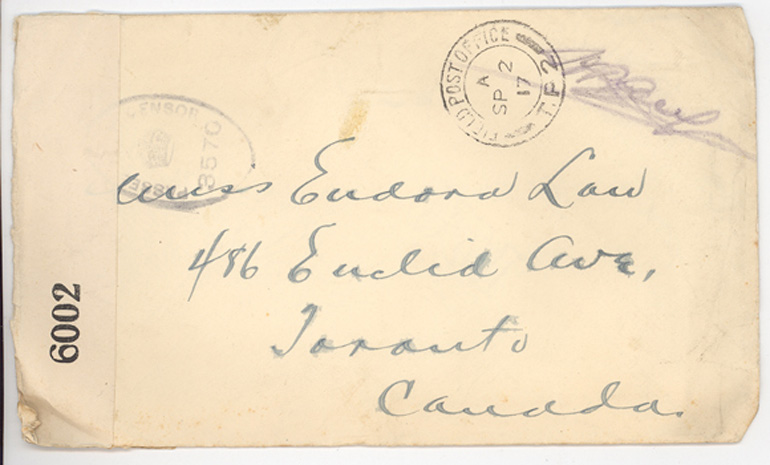 FIELD POST OFFICE
T.P.2
A
SP 2
17
CENSOR
3570
Miss Eudora Law
486 Euclid Ave,
Toronto
Canada.
6002